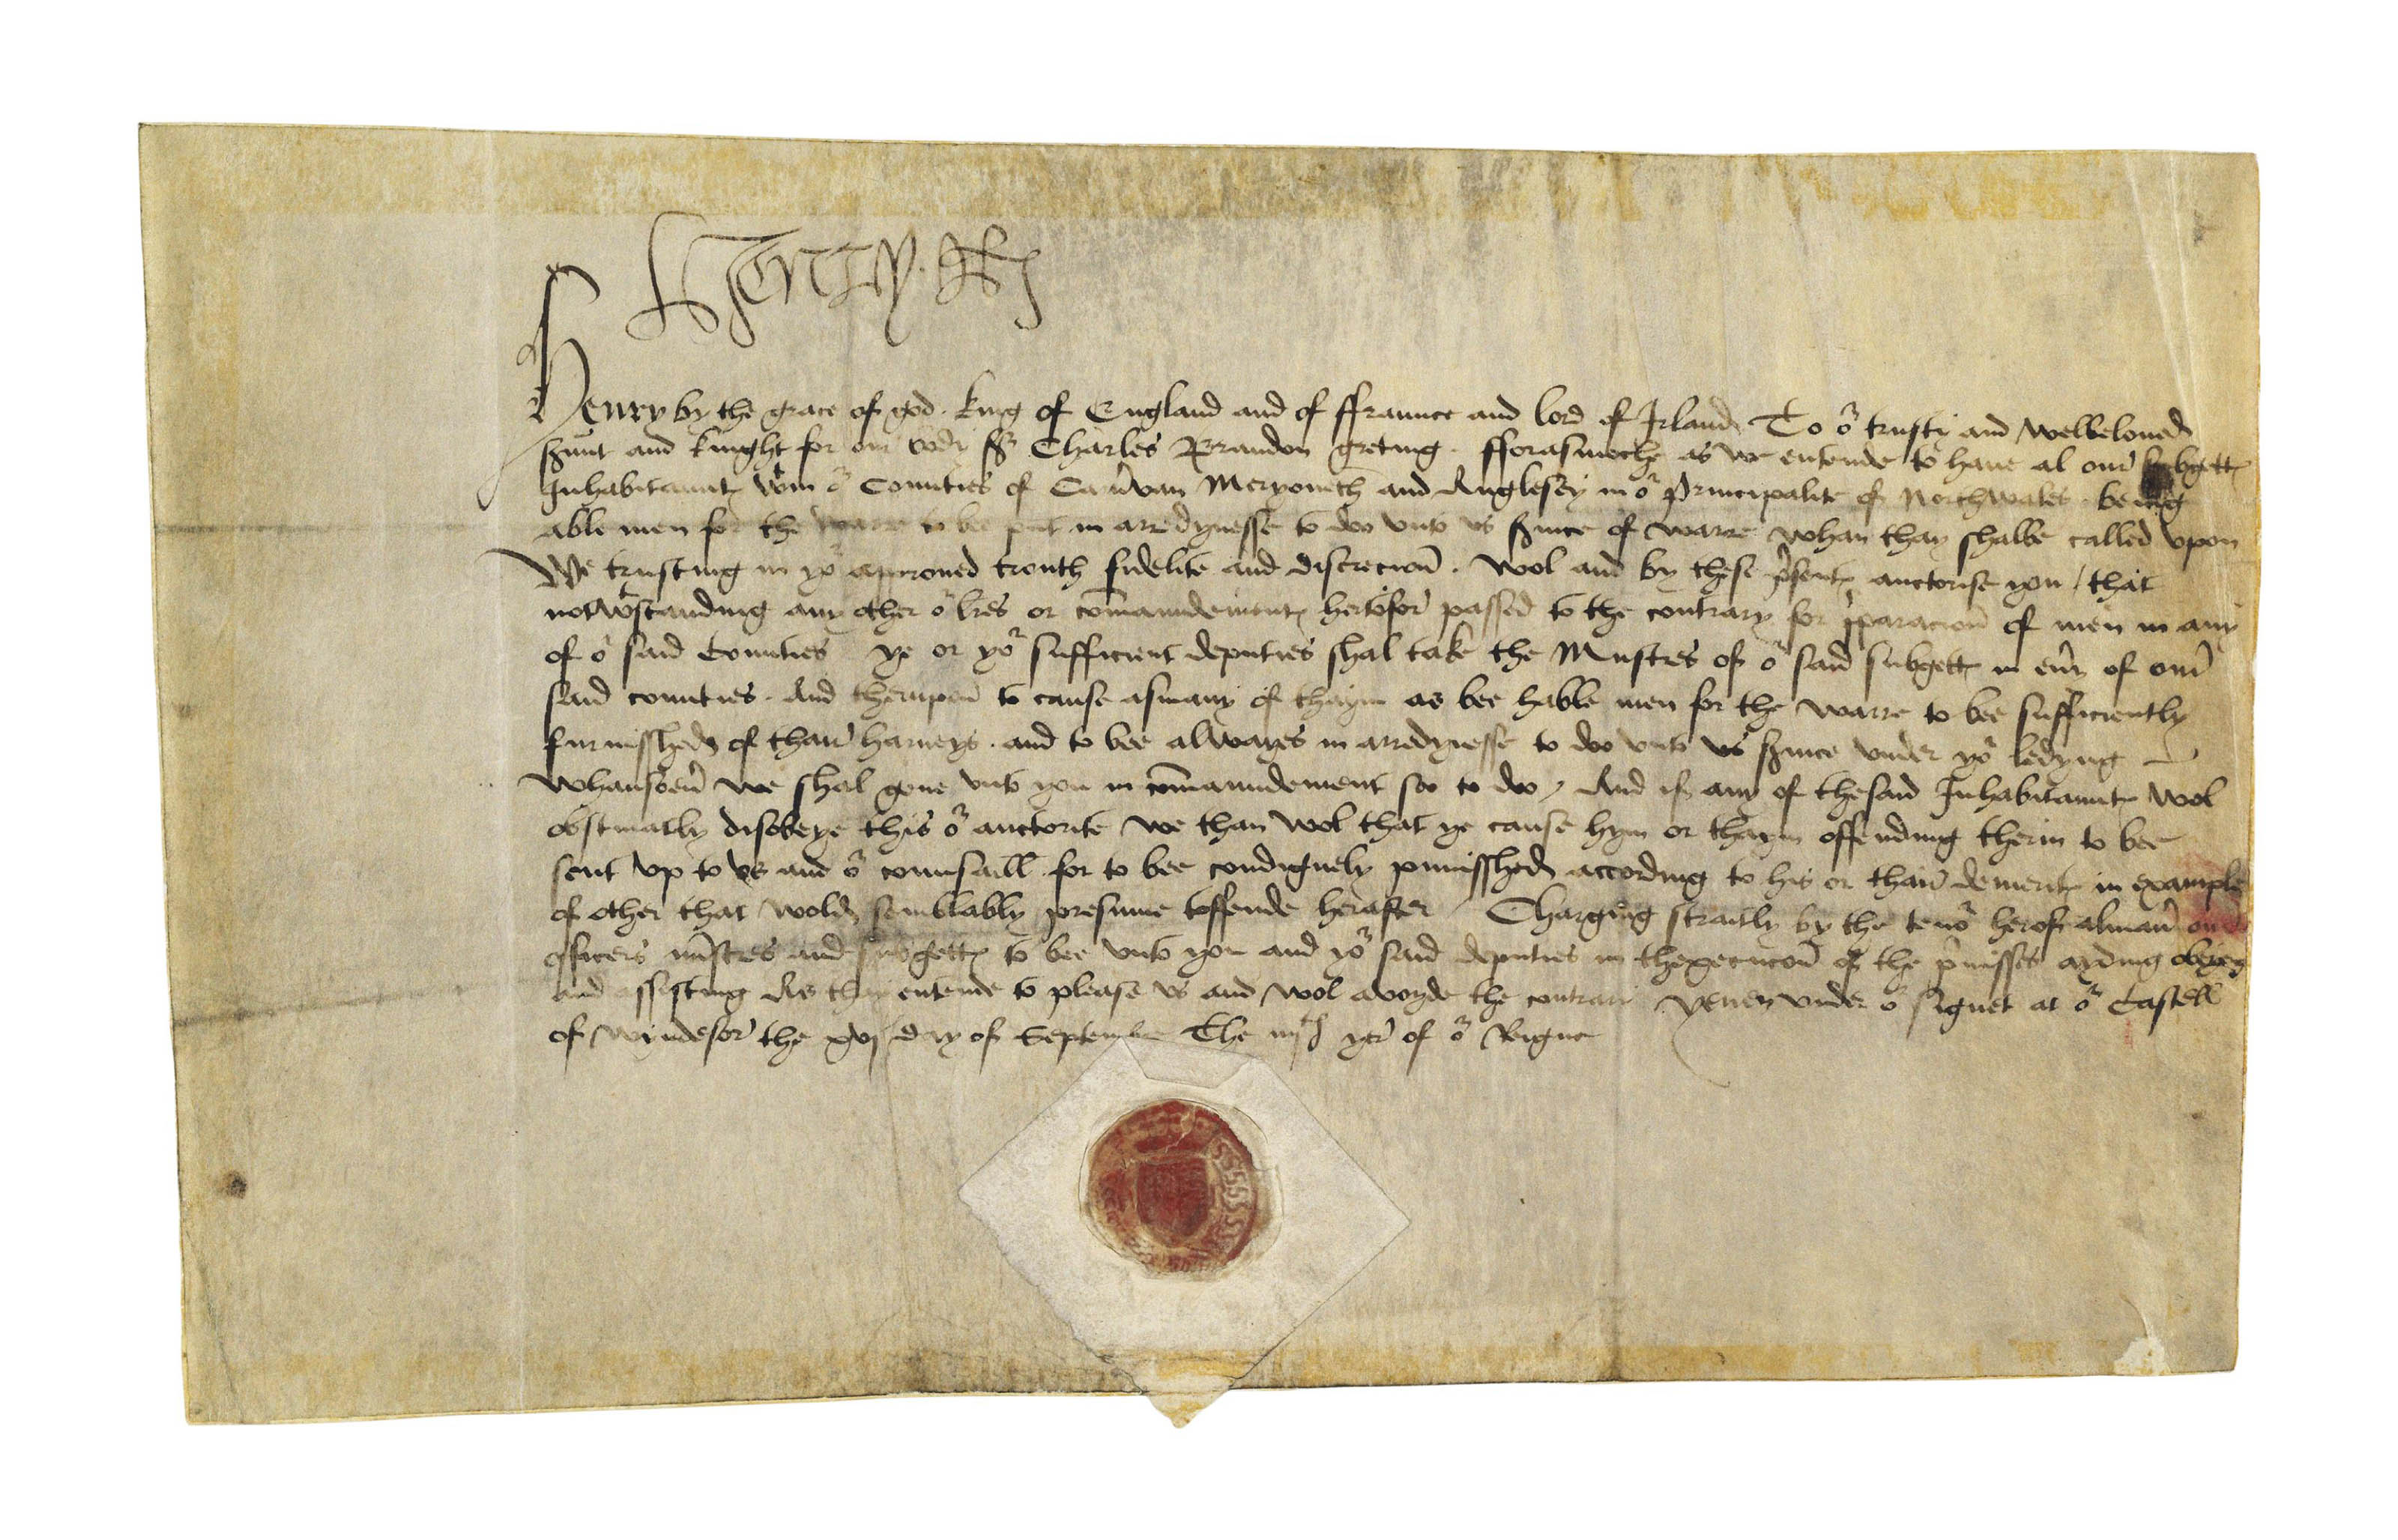 Henry R
Henry by the grace of god king of England and of ffraunce and lord of Irland To oʳ trusty and welbeloued
sꝰunt and knight for our body Sʳ Charles Brandon greting . fforasmoche as we entende to haue al our subgettꝭ
Inhabitauntꝭ wᵗin oʳ Counties of Carnʼvan Meryoneth and Anglesey in oʳ Principalite of Northwales . being
able men for the warre to bee put in arredynesse to doo vnto vs sꝰuice of warre whan thay shalbe called vpon
We trusting in yoʳ approued trouth fidelite and discrecion̄ . wol and by these p̄sentꝭ auctorise you / that
notwᵗstanding any other oʳ lr̄es or com̄aundementꝭ hertofor passed to the contrary for p̄paracion̄ of men in any
of oʳ said Counties ye or yoʳ sufficient deputies shal take the Mustres of oʳ said subgettꝭ in eūy of our
said counties . And therupon̄ to cause asmany of thaym as bee hable men for the warre to bee sufficiently
furnisshed of thair harneys . and to bee alwayes in arredynesse to doo vnto vs sꝰuice vnder yoʳ ledyng
whansoeū we shal geue vnto you in com̄aundement soo to doo / And if any of thesaid Inhabitauntꝭ wol
obstinatly disobeye this oʳ auctorite we than wol that ye cause hym or thaym offending therin to bee
sent vp to vs and oʳ counsaill for to bee condignely punisshed according to his or thair demeritꝭ in example
of other that wold semblably presume toffende herafter / Charging straitly by the tenoʳ herof alman̄ our
officers mīstres and subgettꝭ to bee vnto you and yoʳ said deputies in thexecucon̄ of the p̄misses ayding obeying
and assisting As thay entende to please vs and wol avoyde the contrary Yeuen vnder oʳ signet at oʳ Castell
of Wyndesor the xvj day of Septembre The iiijᵗʰ yer of oʳ Reigne